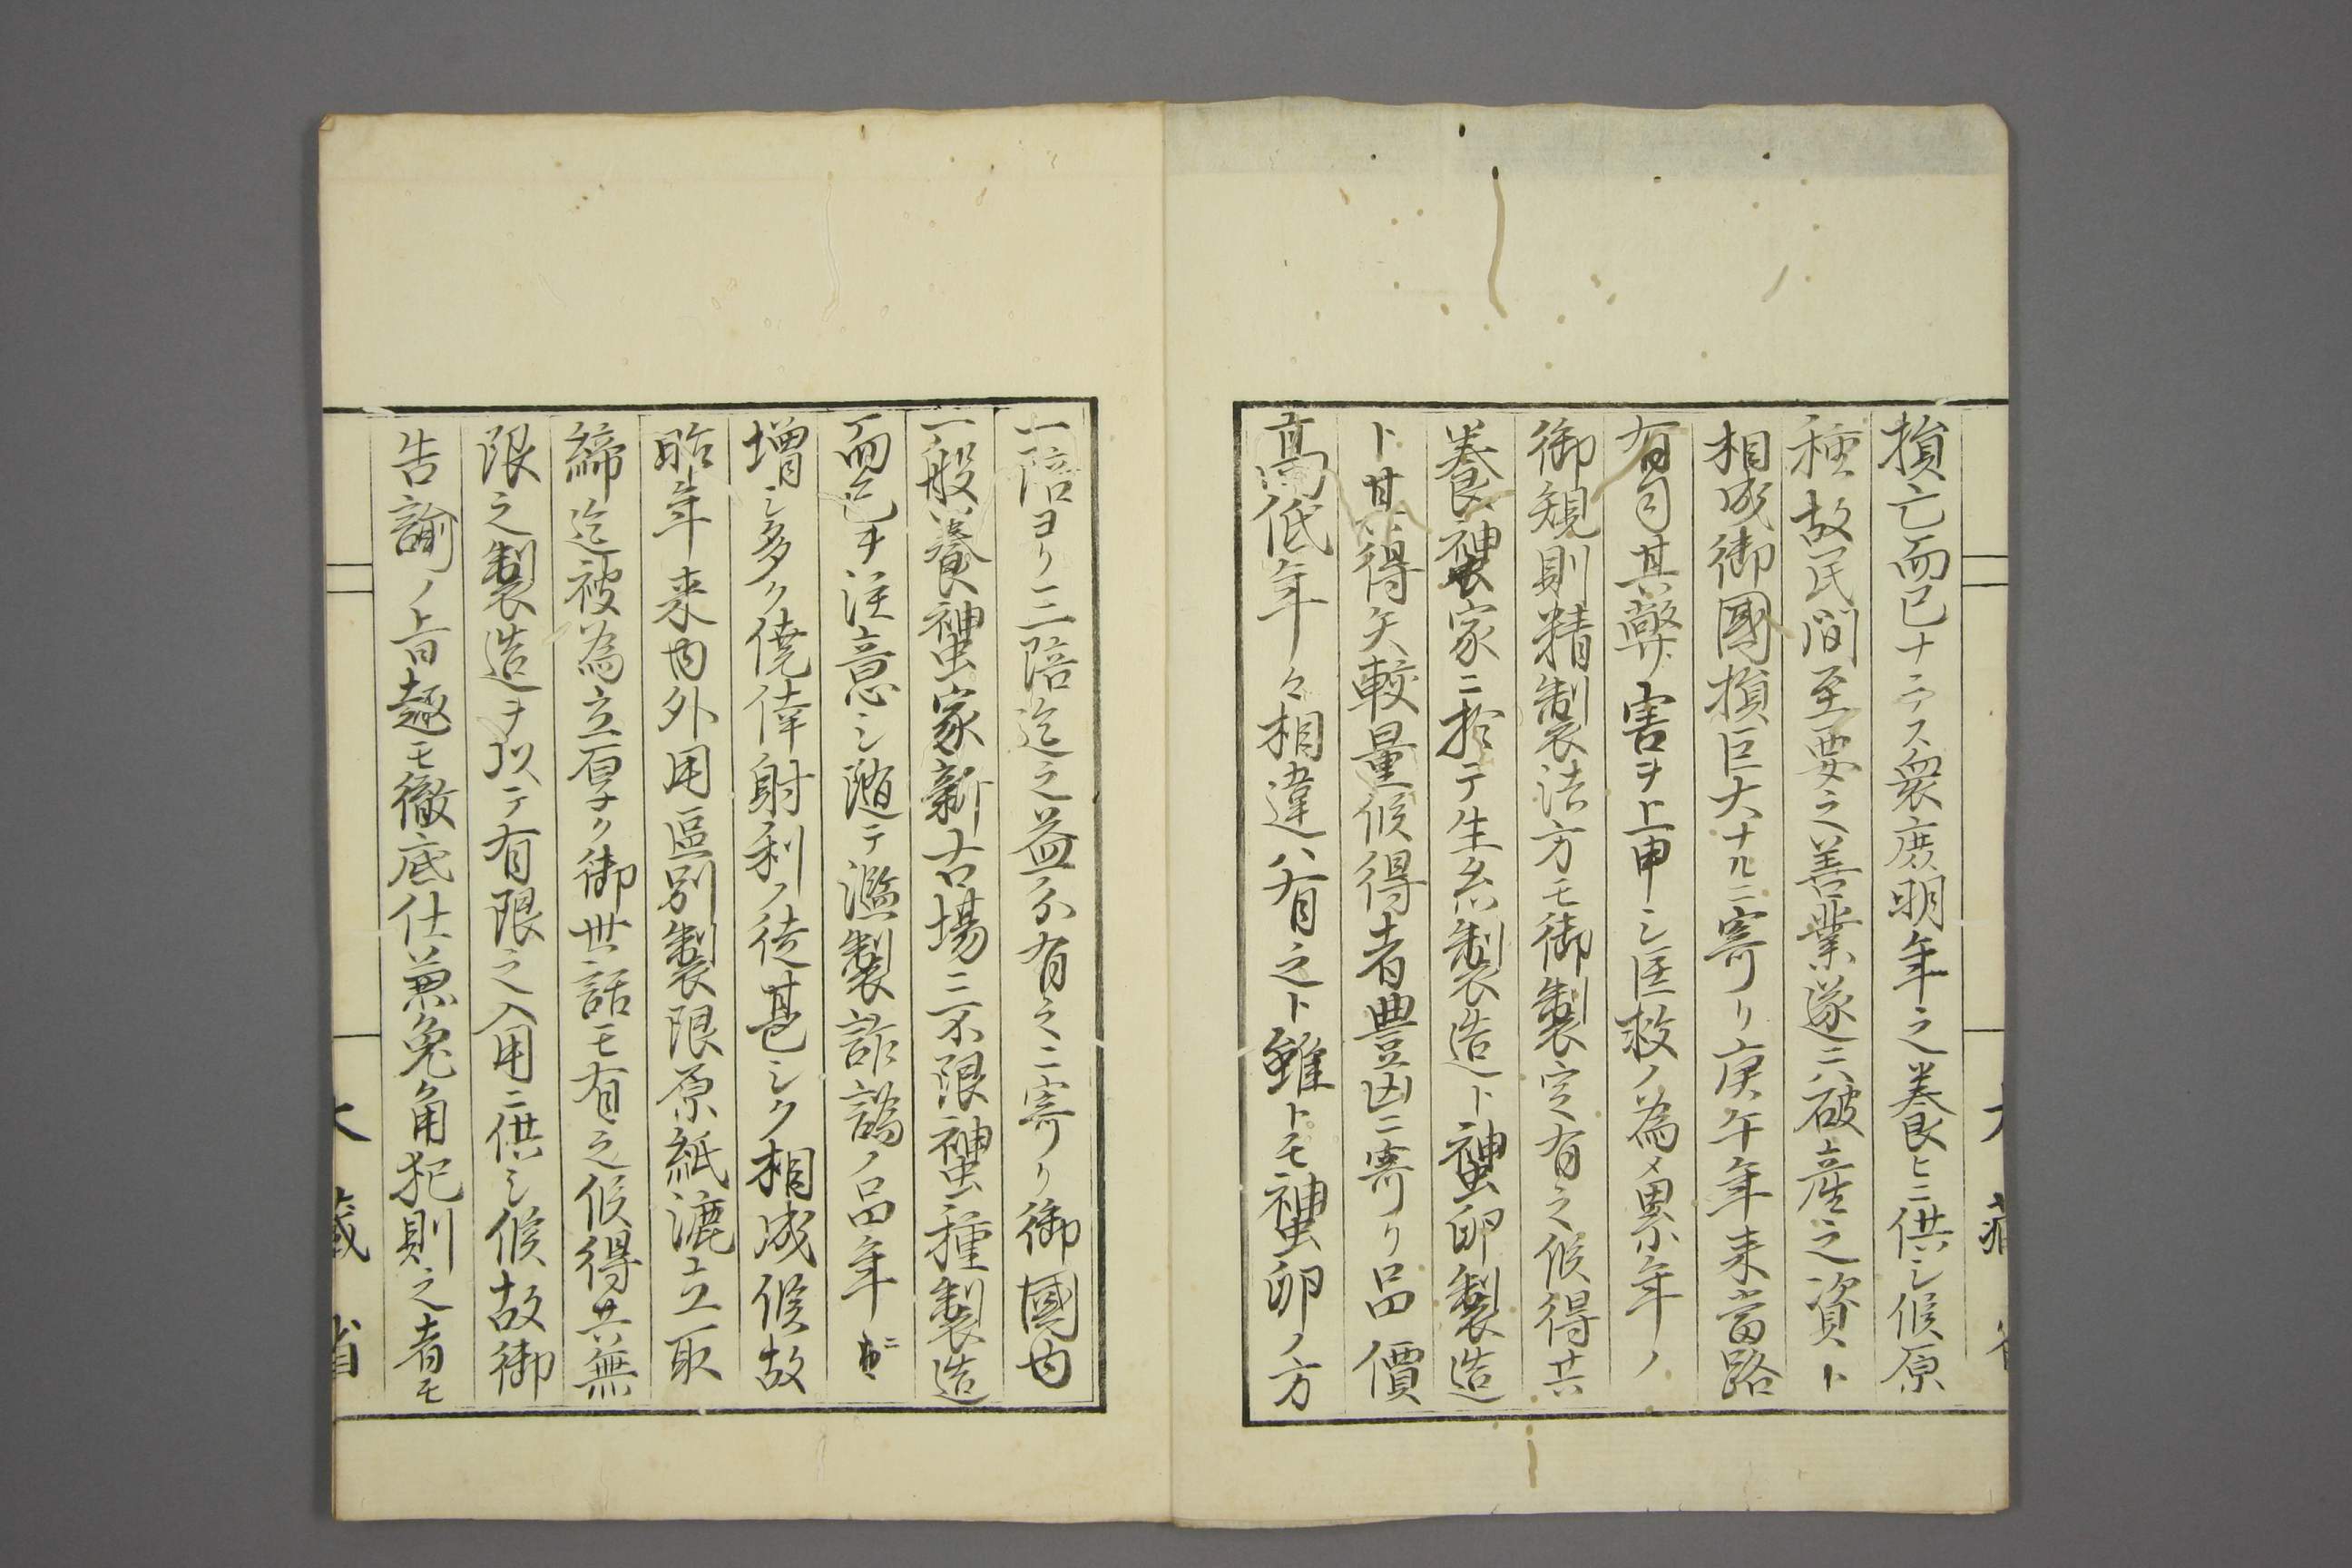 損亡而已ナラス衆庶明年之養ヒニ供シ候原
種故民間至要之善業遂ニハ破産之資ト
相成御國損巨大ナルニ寄リ庚午年来當路
有司其弊害ヲ上申シ匡救ノ為メ累年ノ
御規則精製法方モ御製定有之候得共
養蠶家ニ於テ生糸製造ト蠶卵製造
ト其得失較量候得者豊凶ニ寄リ品價
高低年々相違ハ有之ト雖トモ蠶卵ノ方
一陪ヨリ三陪迄之益分有之ニ寄リ御國内
一般養蠶家新古場ニ不限蠶種製造
而已ヲ注意シ随テ濫製詐譌ノ品年ニ
増シ多ク僥倖射利ノ徒甚シク相成候故
昨年来内外用區別製限原紙漉立取
締迄被為立厚ク御世話モ有之候得共無
限之製造ヲ以テ有限之入用ニ供シ候故御
告諭ノ旨趣モ徹底仕兼兔角犯則之者モ
大藏省